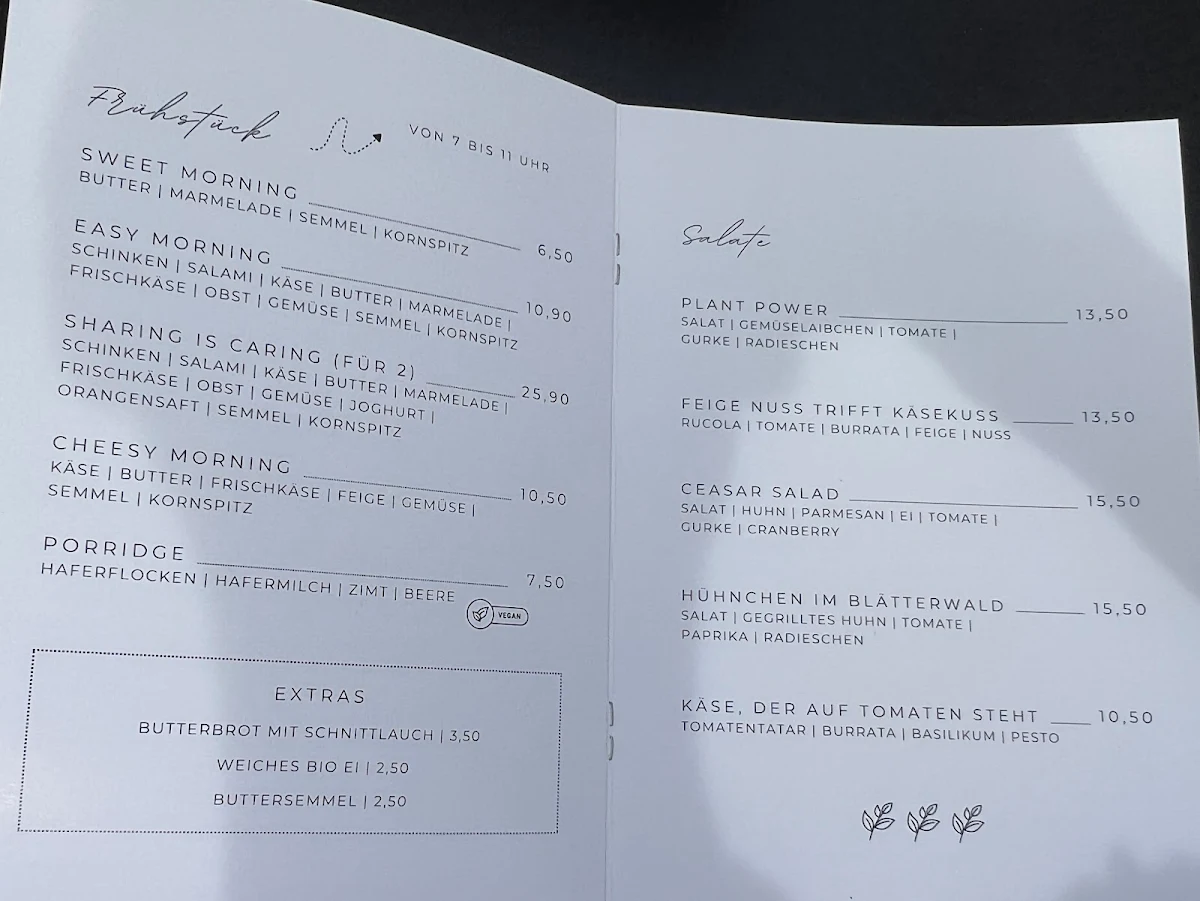 Frühstück
VON 7 BIS 11 UHR
SWEET MORNING 6,50
BUTTER | MARMELADE | SEMMEL | KORNSPITZ
EASY MORNING 10,90
SCHINKEN | SALAMI | KÄSE | BUTTER | MARMELADE |
FRISCHKÄSE | OBST | GEMÜSE | SEMMEL | KORNSPITZ
SHARING IS CARING (FÜR 2) 25,90
SCHINKEN | SALAMI | KÄSE | BUTTER | MARMELADE |
FRISCHKÄSE | OBST | GEMÜSE | JOGHURT |
ORANGENSAFT | SEMMEL | KORNSPITZ
CHEESY MORNING 10,50
KÄSE | BUTTER | FRISCHKÄSE | FEIGE | GEMÜSE |
SEMMEL | KORNSPITZ
PORRIDGE 7,50
HAFERFLOCKEN | HAFERMILCH | ZIMT | BEERE
VEGAN
EXTRAS
BUTTERBROT MIT SCHNITTLAUCH | 3,50
WEICHES BIO EI | 2,50
BUTTERSEMMEL | 2,50
Salate
PLANT POWER 13,50
SALAT | GEMÜSELAIBCHEN | TOMATE |
GURKE | RADIESCHEN
FEIGE NUSS TRIFFT KÄSEKUSS 13,50
RUCOLA | TOMATE | BURRATA | FEIGE | NUSS
CEASAR SALAD 15,50
SALAT | HUHN | PARMESAN | EI | TOMATE |
GURKE | CRANBERRY
HÜHNCHEN IM BLÄTTERWALD 15,50
SALAT | GEGRILLTES HUHN | TOMATE |
PAPRIKA | RADIESCHEN
KÄSE, DER AUF TOMATEN STEHT 10,50
TOMATENTATAR | BURRATA | BASILIKUM | PESTO